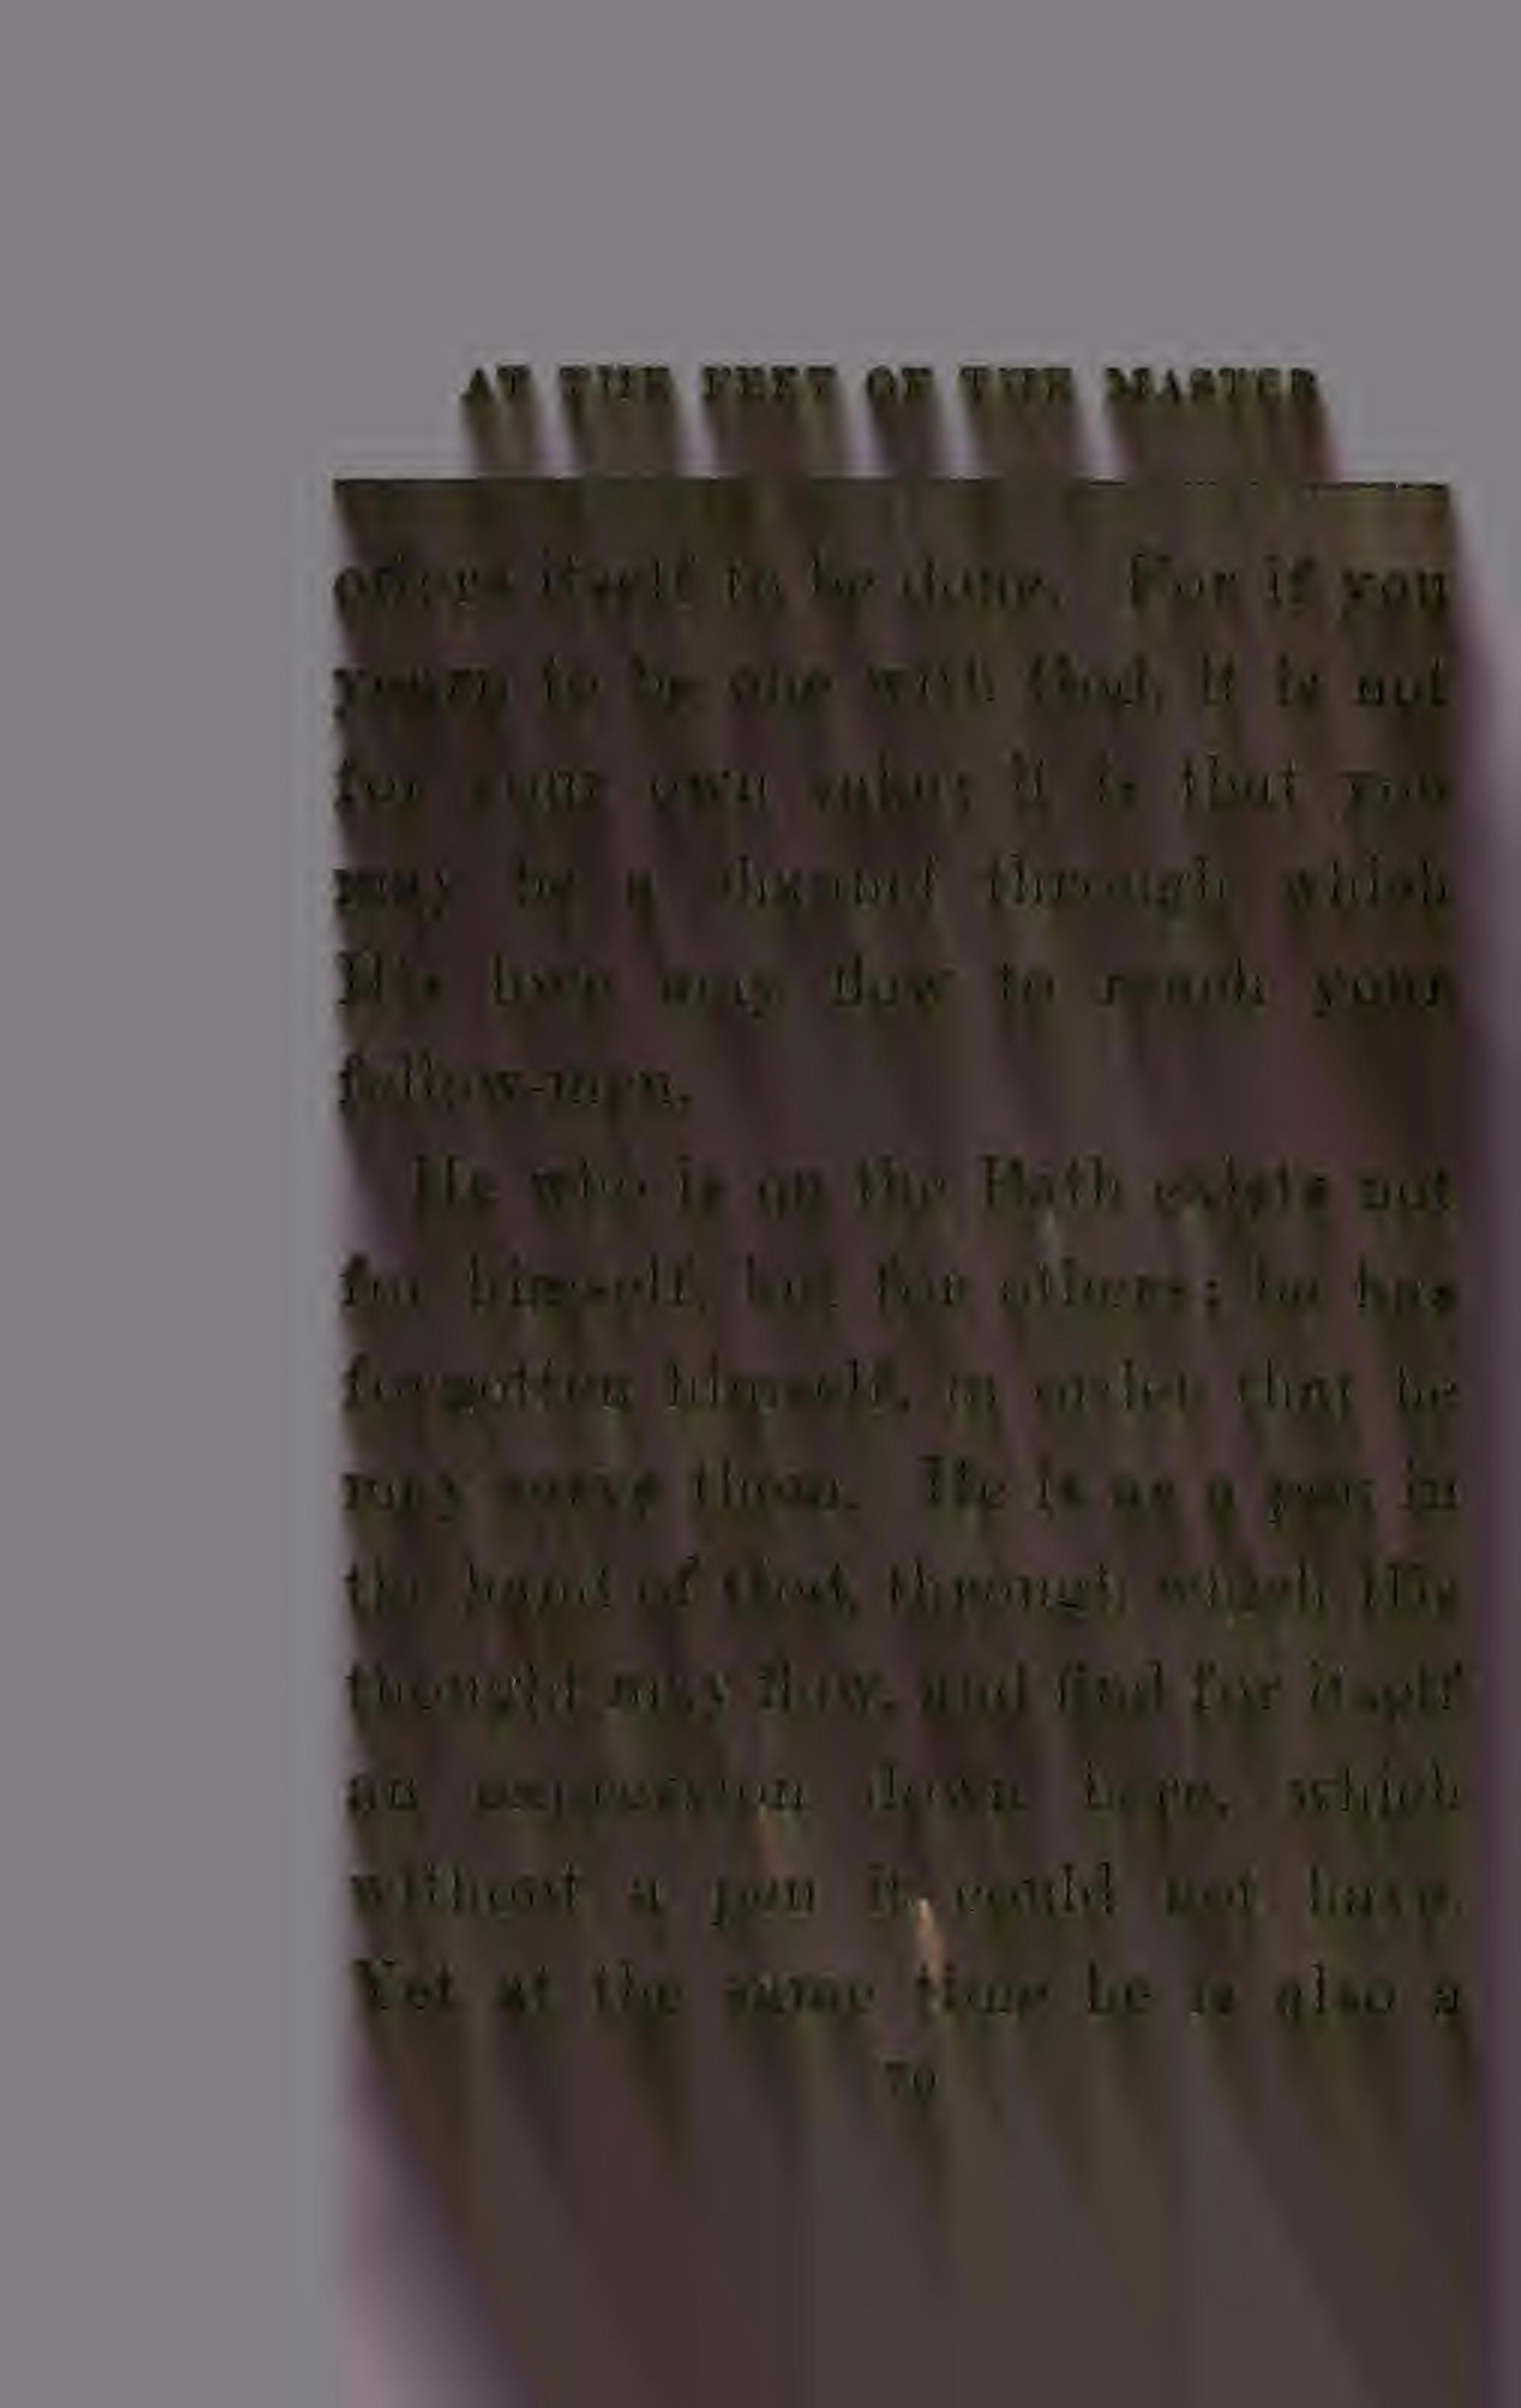 AT THE FEET OF THE MASTER
offers itself to be done. For if you
yearn to be one with God, it is not
for your own sake; it is that you
may be a channel through which
His love may flow to reach your
fellow-men.
He who is on the Path exists not
for himself, but for others; he has
forgotten himself, in order that he
may serve them. He is as a pen in
the hand of God, through which His
thought may flow, and find for itself
an expression down here, which
without a pen it could not have.
Yet at the same time he is also a
70